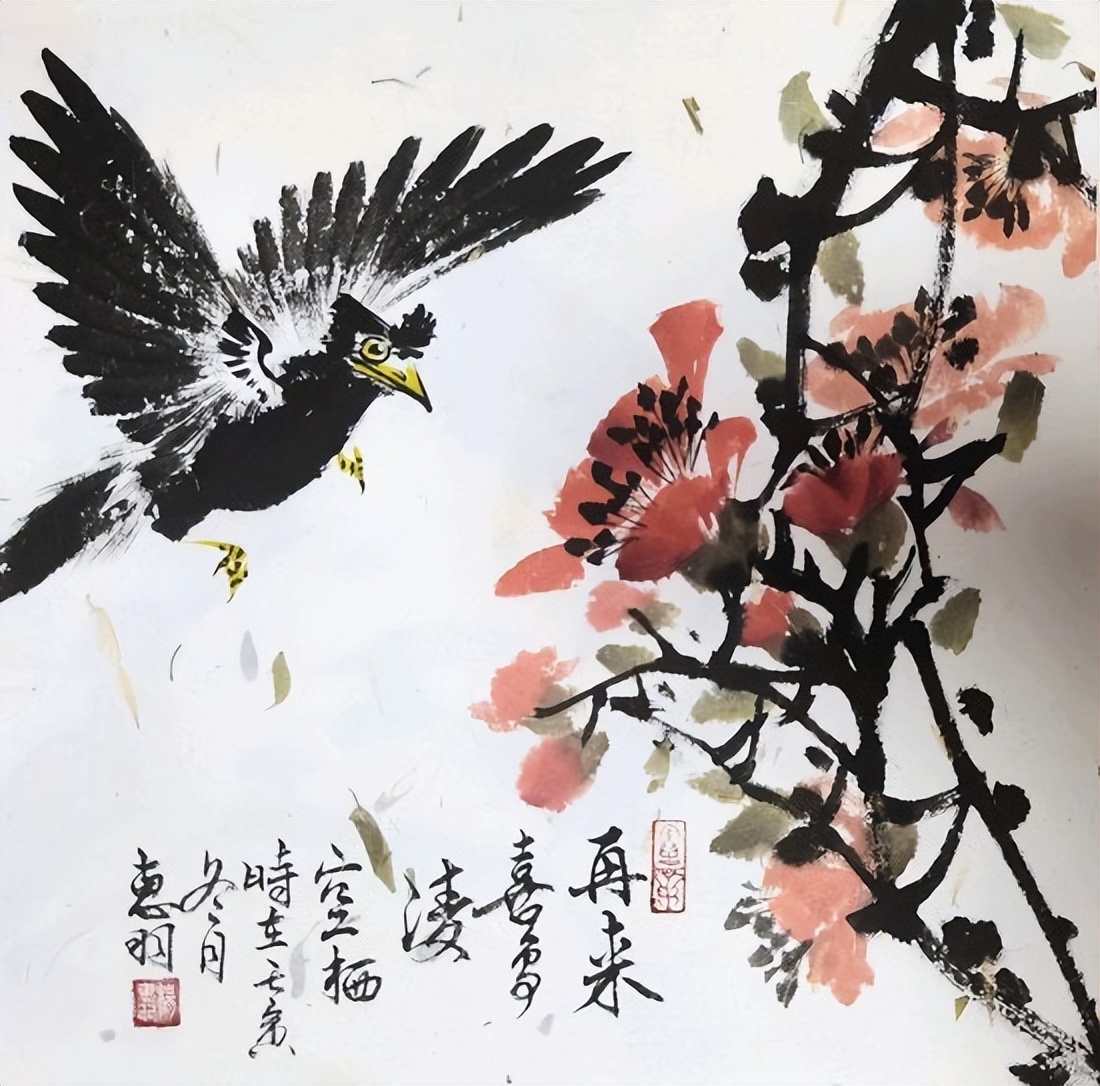 再来
喜鸟
凌
空栖
時在壬寅
冬月
惠羽